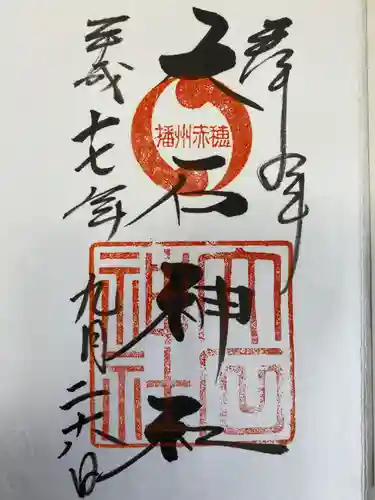 奉拝
大石神社
播州赤穂
大石神社
平成十七年
九月二十八日